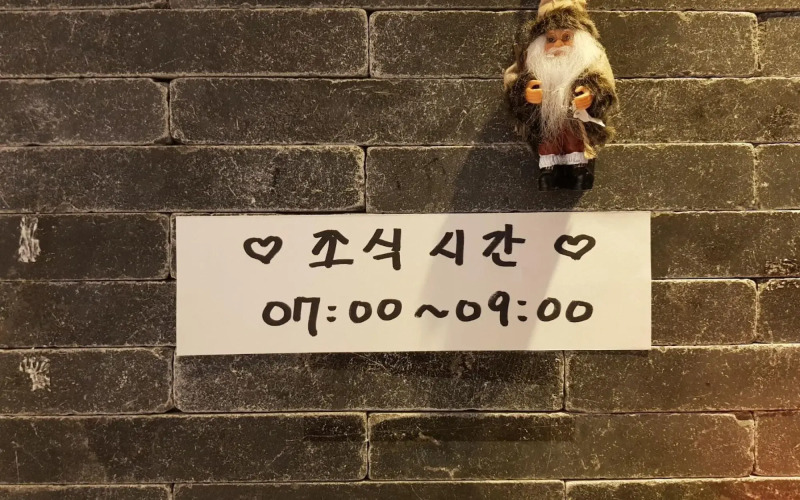 ♡ 조식 시간 ♡
07:00~09:00